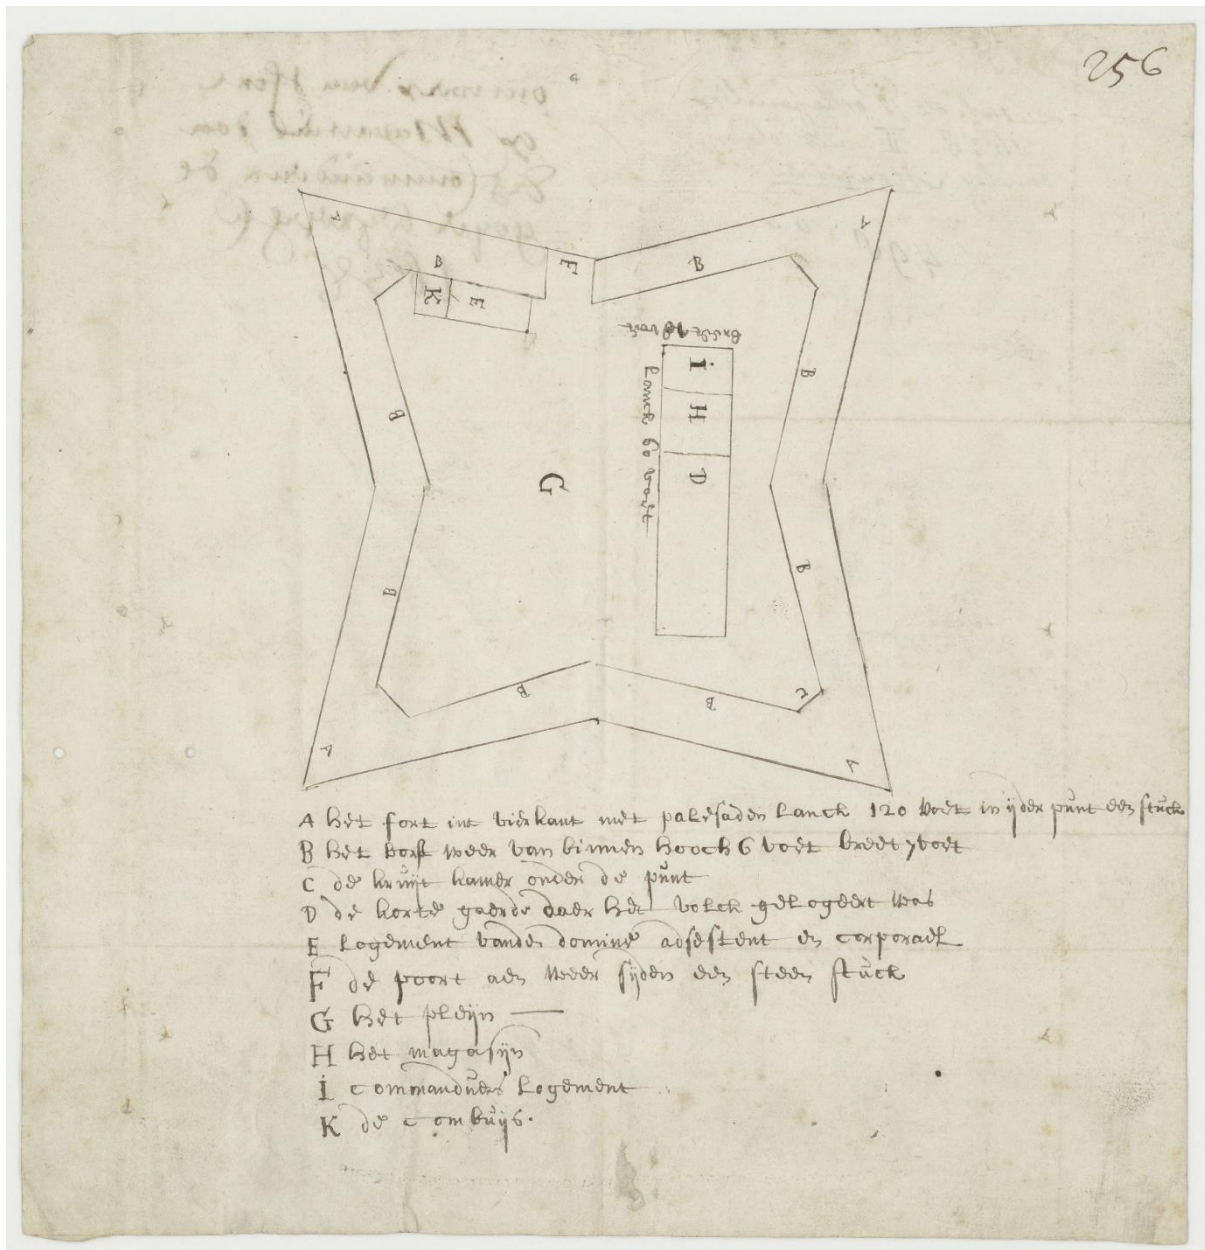 256
A
A
B
F
B
K
E
breet 18 voet
I
H
D
Lanck 60 voet
B
B
G
B
B
B
B
C
A
A
A het fort int vierkant met palesaden Lanck 120 voet in ijder punt een stuck
B het borst weer van binnen hooch 6 voet breet 7 voet
C de kruijt kamer onder de punt
D de korte gaerde daer het volck gelogeert was
E Logement vande domine adsestent en corporael
F de poort aen weer sijden een steen stuck
G het pleijn
H het magasijn
I commanduers Logement
K de combuijs.